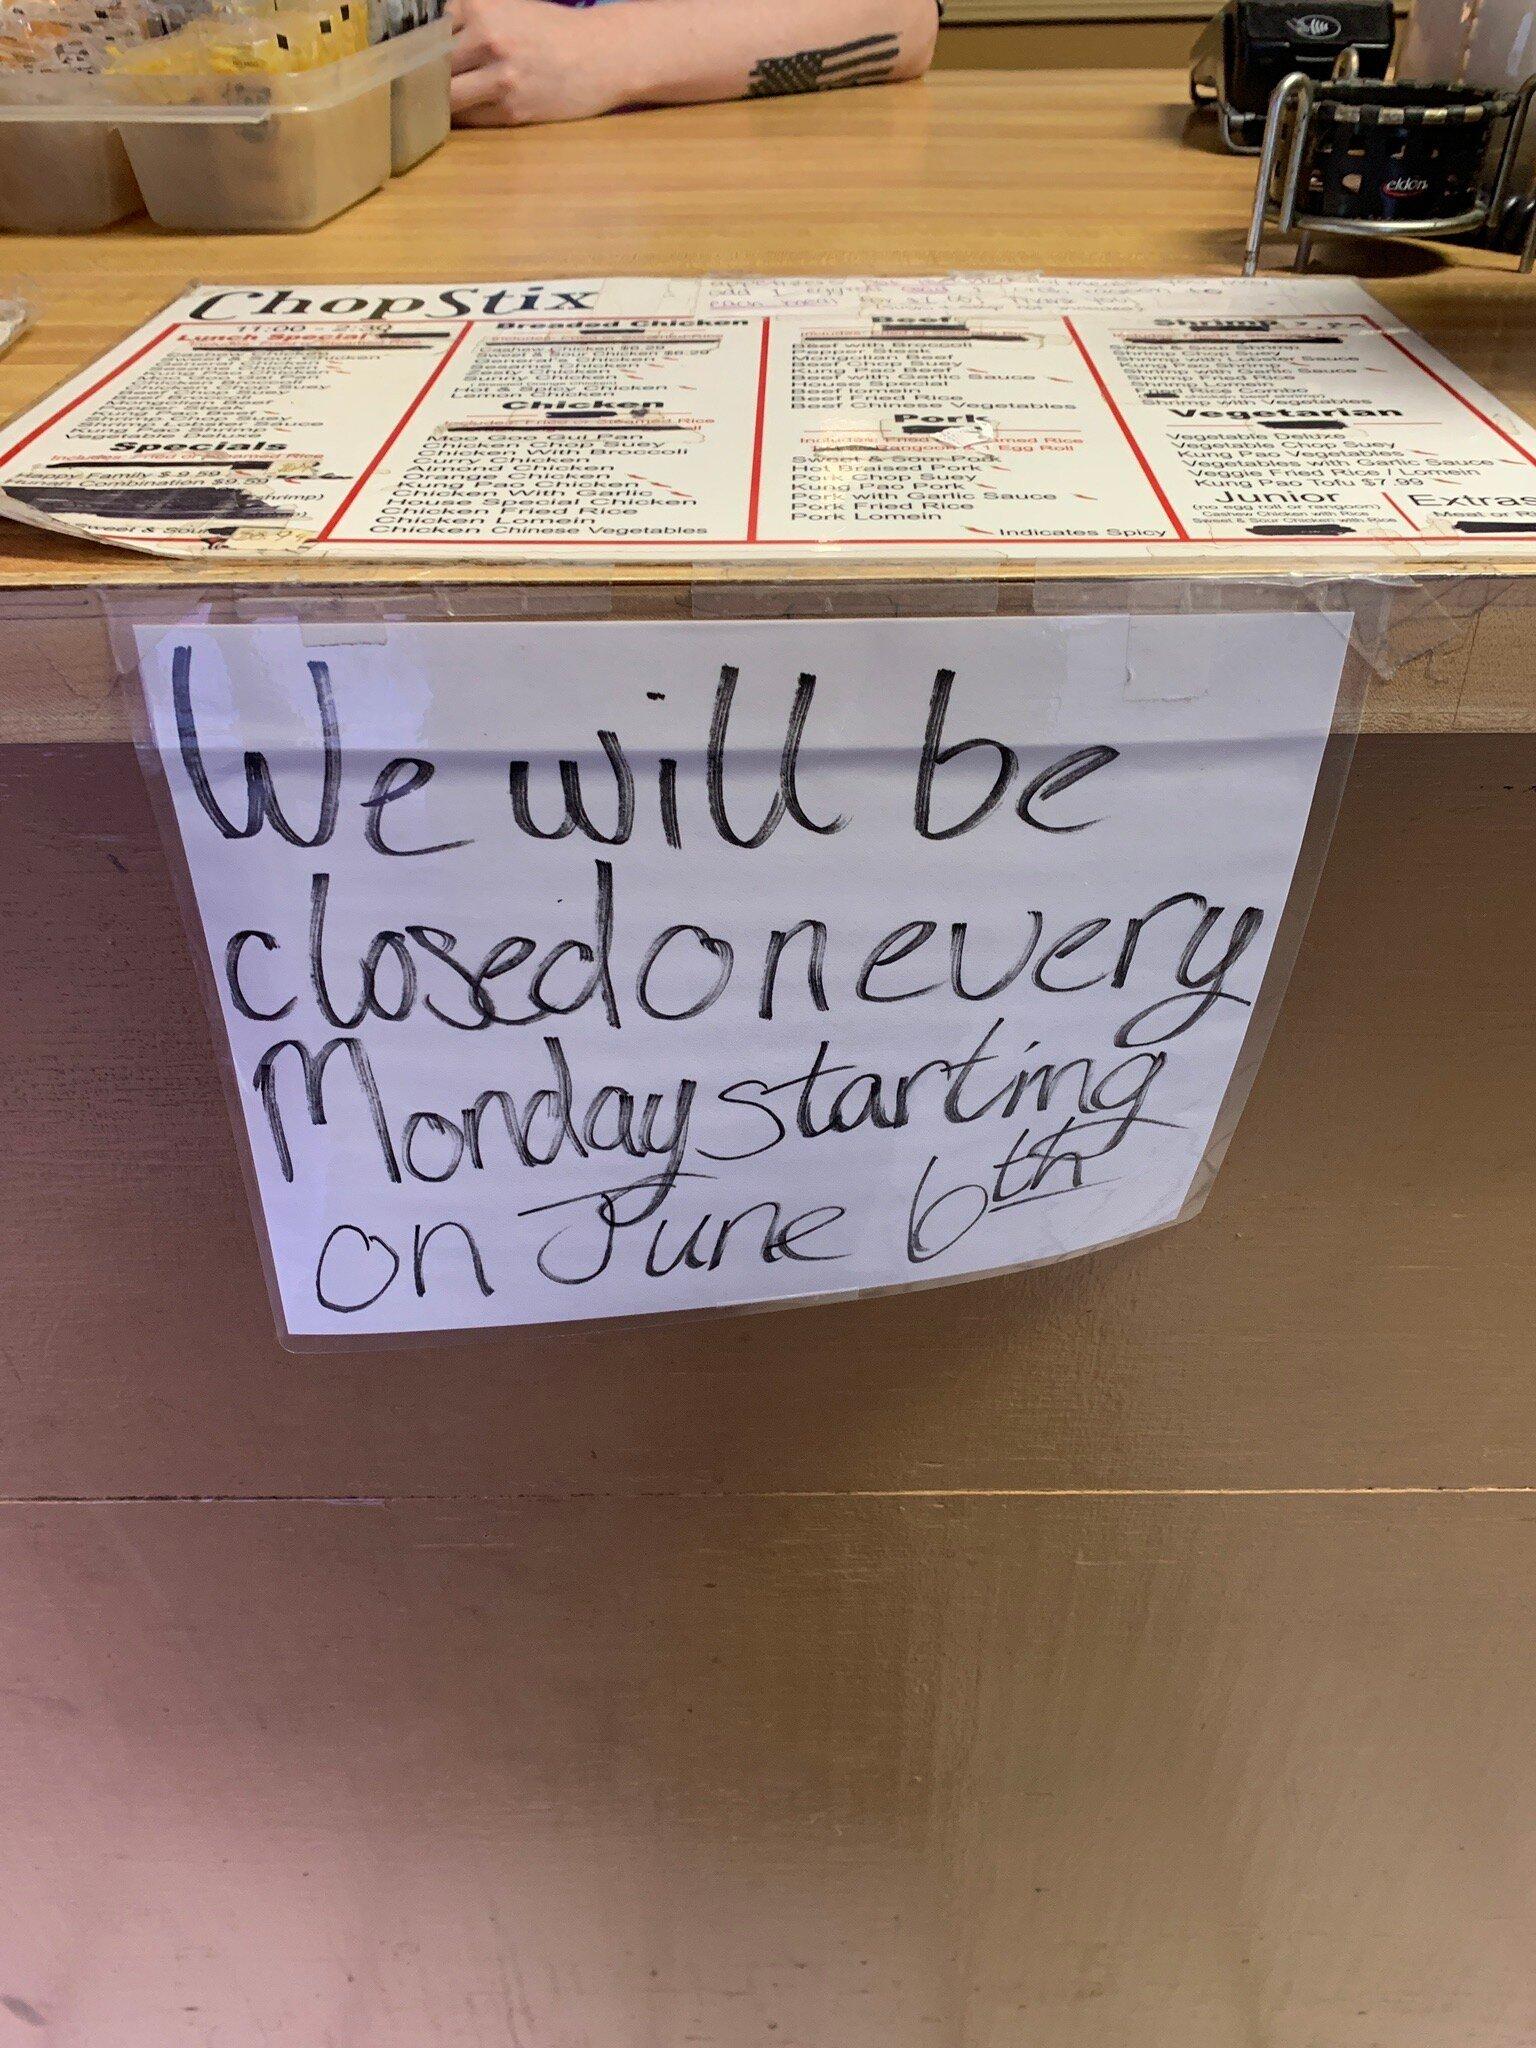 eldon
ChopStix
11:00 - 2:30
Lunch Special
Pepper Steak
Shrimp Lobster Sauce
Kung Pao Shrimp
Vegetable Deluxe
Specials
Includes Fried or Steamed Rice
Happy Family $9.59
Hunan Combination $9.59
Sweet & Sour
Breaded Chicken
Sweet & Sour Chicken $8.29
General's Chicken
Sesame Chicken
Lemon Chicken
Chicken
Includes Fried or Steamed Rice
Moo Goo Gui Pan
Chicken Chop Suey
Chicken With Broccoli
Curry Chicken
Almond Chicken
Orange Chicken
Kung Pao Chicken
Chicken With Garlic
House Special Chicken
Chicken Fried Rice
Chicken Lomein
Chicken Chinese Vegetables
Beef
Beef with Broccoli
Pepper Steak
Mongolian Beef
Beef Chop Suey
Kung Pao Beef
Beef with Garlic Sauce
House Special
Beef Lomein
Beef Fried Rice
Beef Chinese Vegetables
Pork
Egg Roll
Sweet & Sour Pork
Hot Braised Pork
Pork Chop Suey
Kung Pao Pork
Pork with Garlic Sauce
Pork Fried Rice
Pork Lomein
Indicates Spicy
Shrimp
Shrimp Chop Suey
Kung Pao Shrimp
Shrimp Lomein
Shrimp with Vegetables
Vegetarian
Vegetable Deluxe
Vegetable Chop Suey
Kung Pao Vegetables
Vegetables with Garlic Sauce
Veggie Fried Rice / Lomein
Kung Pao Tofu $7.99
Junior
(no egg roll or rangoon)
Cashew Chicken with Rice
Sweet & Sour Chicken with Rice
Extras
Meat or
We will be
closed on every
Monday starting
on June 6th